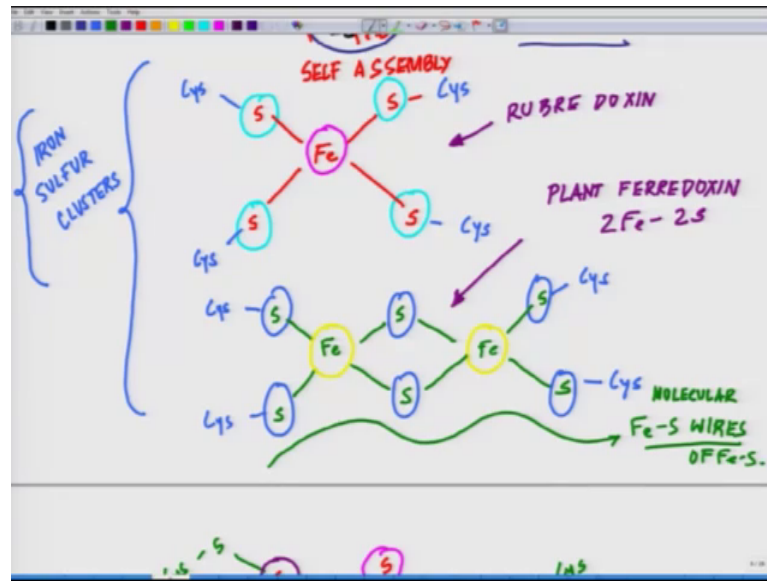 SELF ASSEMBLY
IRON
SULFUR
CLUSTERS
Cys
S
S
Cys
Fe
RUBRE DOXIN
S
Cys
S
Cys
PLANT FERREDOXIN
2Fe-2S
Cys
S
S
S
Cys
Fe
Fe
Cys
S
S
S
Cys
MOLECULAR
Fe-S WIRES
OF Fe-S.
S
S